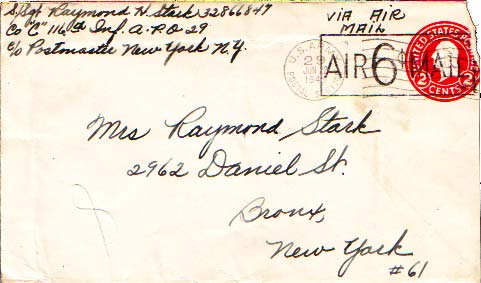 S/Sgt Raymond H. Stark 32866847
Co "C" 116th Inf. A.P.O 29
c/o Postmaster New York N.Y.
VIA AIR
MAIL
U.S. ARMY
POSTAL
29
JUN
194
AIR 6¢ MAIL
UNITED STATES
2 CENTS 2
Mrs Raymond Stark
2962 Daniel St.
Bronx,
New York
#61